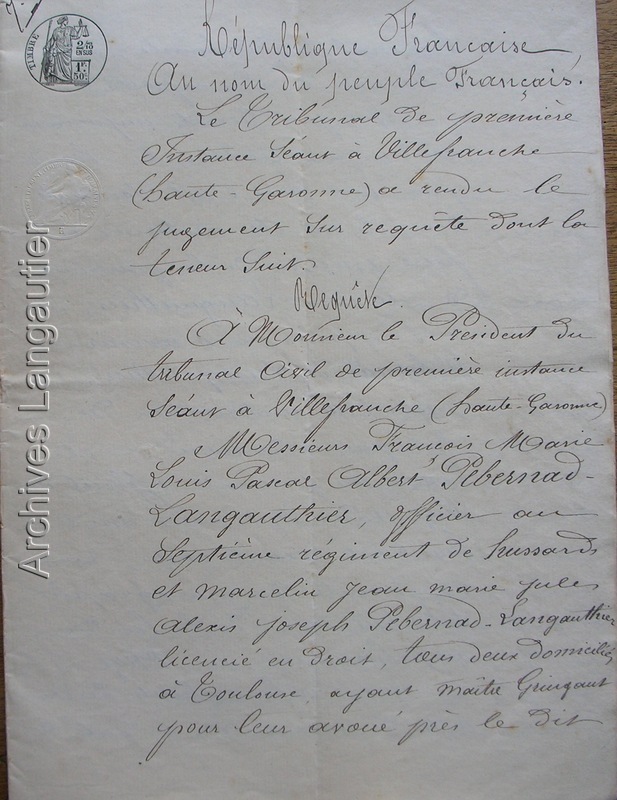 TIMBRE
2/10 EN SUS
1F 50c
République Française
Au nom du peuple Français.
Le Tribunal de première
Instance Séant à Villefranche
(haute-Garonne) a rendu le
jugement sur requête dont la
teneur suit.
Requête.
À Monsieur le Président du
tribunal Civil de première instance
séant à Villefranche (haute-Garonne)
Messieurs François Marie
Louis Pascal Albert Pebernad-
Langauthier, officier au
Septième régiment de hussards
et marcelin jean marie jules
alexis joseph Pebernad-Langauthier
licencié en droit, tous deux domiciliés
à Toulouse, ayant maître Gringaut
pour leur avoué près le dit
Archives Langautier